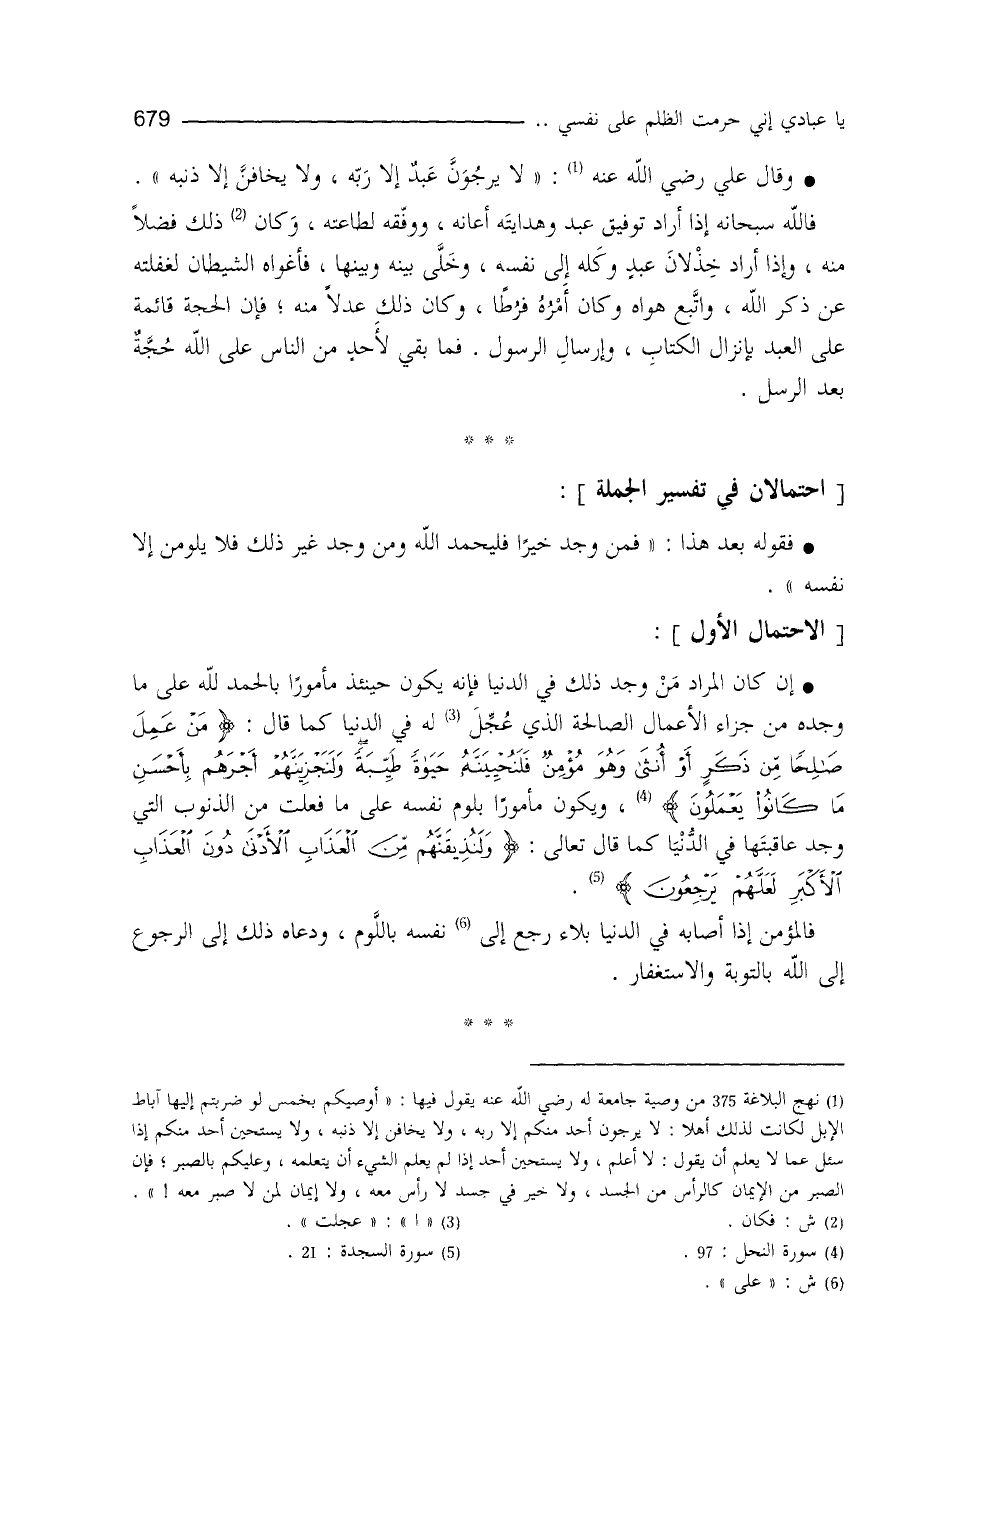 يا عبادي إني حرمت الظلم على نفسي .. 679
● وقال علي رضي الله عنه (1) : « لا يرجُوَنَّ عَبدٌ إلا رَبّه ، ولا يخافنَّ إلا ذنبه » .
فاللّه سبحانه إذا أراد توفيق عبد وهدايتَه أعانه ، ووفّقه لطاعته ، وَكان (2) ذلك فضلاً
منه ، وإذا أراد خِذْلانَ عبدٍ وكَله إلى نفسه ، وخَلَّى بينه وبينها ، فأغواه الشيطان لغفلته
عن ذكر اللّه ، واتَّبع هواه وكان أَمْرُهُ فرُطًا ، وكان ذلك عدلاً منه ؛ فإن الحجة قائمة
على العبد بإنزال الكتابِ ، وإرسالِ الرسول . فما بقي لأَحدٍ من الناس على اللّه حُجَّةٌ
بعد الرسل .
* * *
[ احتمالان في تفسير الجملة ] :
● فقوله بعد هذا : « فمن وجد خيرًا فليحمد اللّه ومن وجد غير ذلك فلا يلومن إلا
نفسه » .
[ الاحتمال الأول ] :
● إن كان المراد مَنْ وجد ذلك في الدنيا فإنه يكون حينئذ مأمورًا بالحمد للّه على ما
وجده من جزاء الأعمال الصالحة الذي عُجِّلَ (3) له في الدنيا كما قال : ﴿ مَنْ عَمِلَ
صَٰلِحًا مِّن ذَكَرٍ أَوْ أُنثَىٰ وَهُوَ مُؤْمِنٌ فَلَنُحْيِيَنَّهُۥ حَيَوٰةً طَيِّبَةً ۖ وَلَنَجْزِيَنَّهُمْ أَجْرَهُم بِأَحْسَنِ
مَا كَانُوا۟ يَعْمَلُونَ ﴾ (4) ، ويكون مأمورًا بلوم نفسه على ما فعلت من الذنوب التي
وجد عاقبتَها في الدُّنْيَا كما قال تعالى : ﴿ وَلَنُذِيقَنَّهُم مِّنَ ٱلْعَذَابِ ٱلْأَدْنَىٰ دُونَ ٱلْعَذَابِ
ٱلْأَكْبَرِ لَعَلَّهُمْ يَرْجِعُونَ ﴾ (5) .
فالمؤمن إذا أصابه في الدنيا بلاء رجع إلى (6) نفسه باللَّوم ، ودعاه ذلك إلى الرجوع
إلى اللّه بالتوبة والاستغفار .
* * *
(1) نهج البلاغة 375 من وصية جامعة له رضي اللّه عنه يقول فيها : « أوصيكم بخمس لو ضربتم إليها آباط
الإبل لكانت لذلك أهلا : لا يرجون أحد منكم إلا ربه ، ولا يخافن إلا ذنبه ، ولا يستحين أحد منكم إذا
سئل عما لا يعلم أن يقول : لا أعلم ، ولا يستحين أحد إذا لم يعلم الشيء أن يتعلمه ، وعليكم بالصبر ؛ فإن
الصبر من الإيمان كالرأس من الجسد ، ولا خير في جسد لا رأس معه ، ولا إيمان لمن لا صبر معه ! » .
(2) ش : فكان . (3) « ا » : « عجلت » .
(4) سورة النحل : 97 . (5) سورة السجدة : 21 .
(6) ش : « على » .